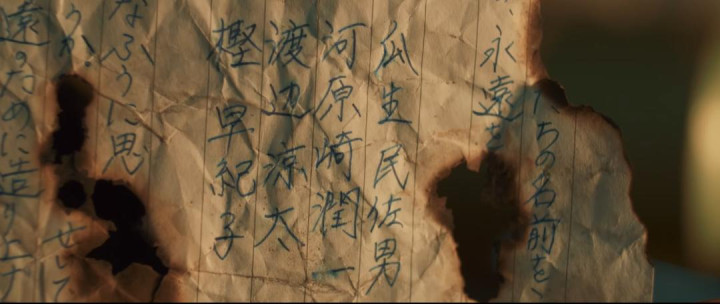 たちの名前を、
、永遠を
瓜生民佐男
河原崎潤一
渡辺涼太
樫早紀子
なふうに思
うか、せして
遠のために造り上げ